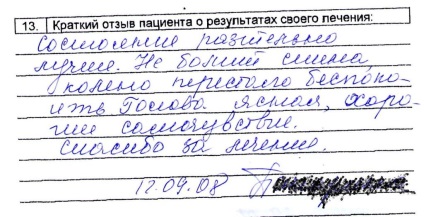 13. Краткий отзыв пациента о результатах своего лечения:
Состояние разительно
лучше. Не болит спина,
колено перестало беспоко-
ить Голова ясная, хоро-
шее самочувствие.
Спасибо за лечение.
12.09.08